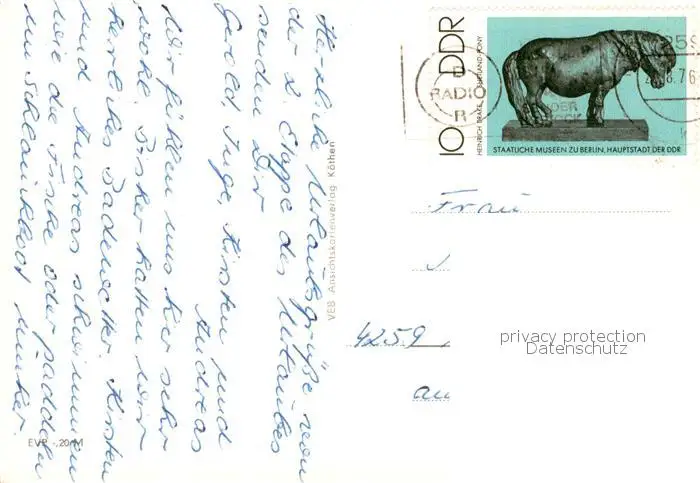 Herzliche Urlaubsgrüße von
der 2. Etappe des Urlaubes
senden Dir
Gerold, Inge, Kirsten und
Andreas
Wir fühlen uns hier sehr
wohl. Bisher hatten wir
herrliches Badewetter. Kirsten
und Andreas schwimmen
wie die Fische oder paddeln
im Schlauchboot umher.
VEB Ansichtskartenverlag Köthen
EVP -,20 M
10 DDR
HEINRICH DRAKE, SHETLAND-PONY
STAATLICHE MUSEEN ZU BERLIN, HAUPTSTADT DER DDR
RADIO
DER
8.76
Frau
4259
au
privacy protection
Datenschutz